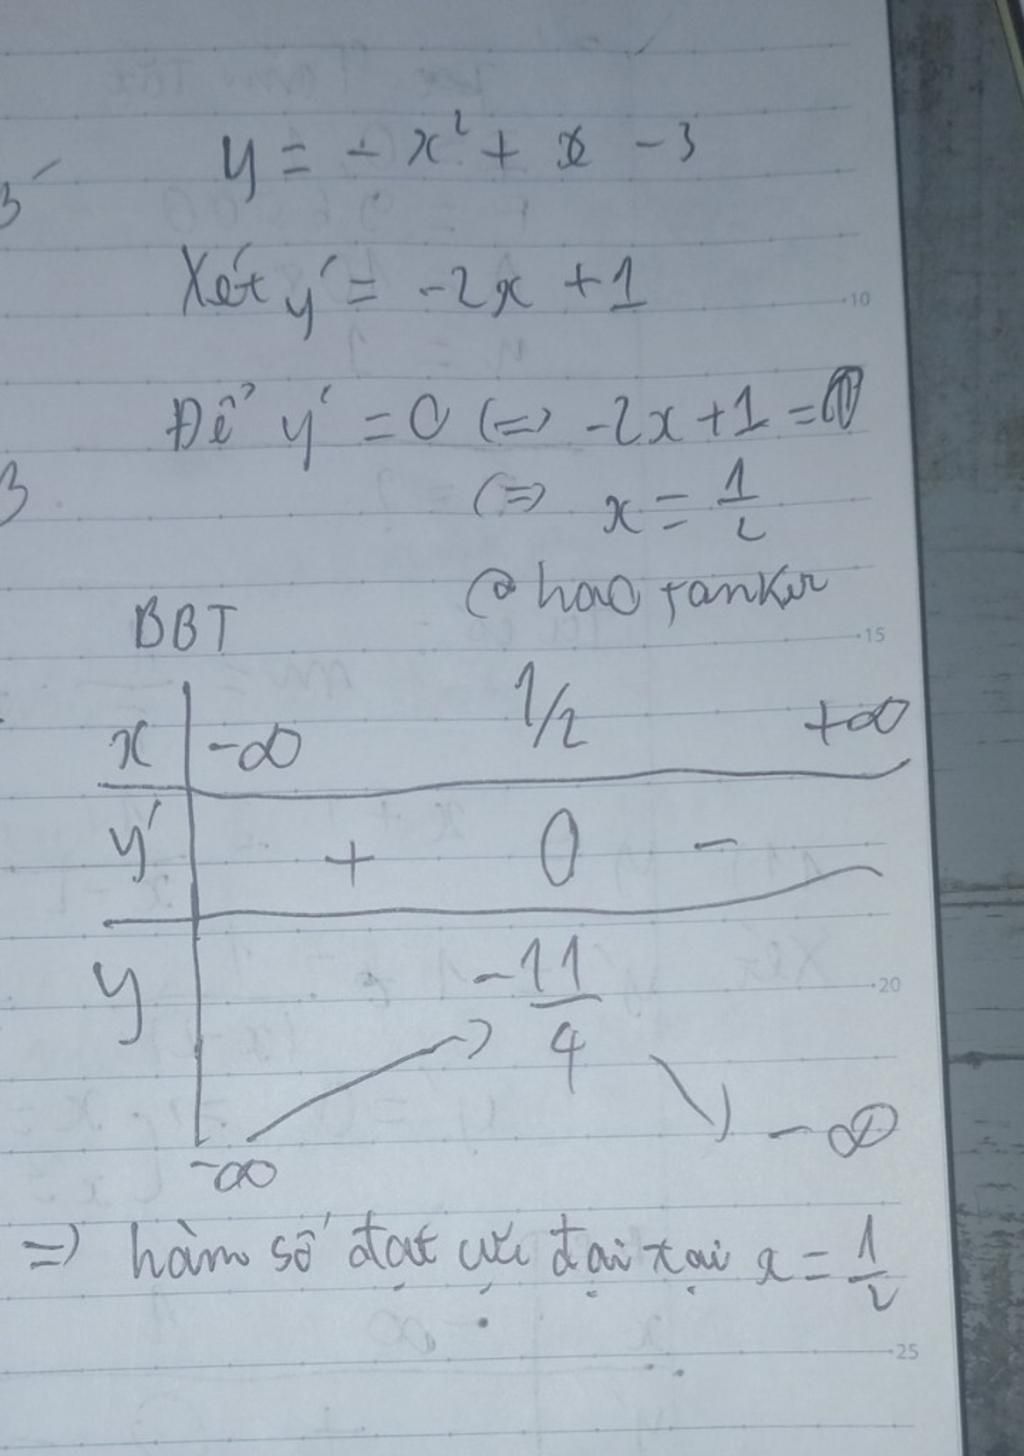 y = - x² + x - 3
Xét y' = -2x + 1
10
Để y' = 0 (=) -2x + 1 = 0
(=) x = 1/2
@ hao
BBT
15
x -∞ 1/2 +∞
y' + 0 -
y -11/4
20
-∞ -∞
=) hàm số đạt cực đại tại x = 1/2
25